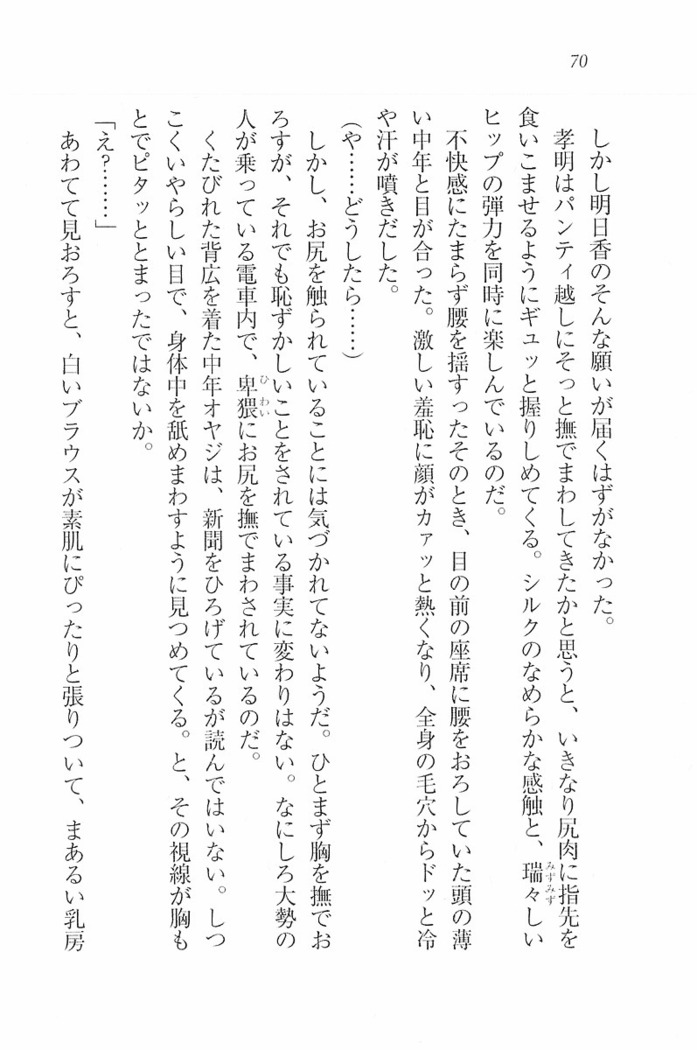 70
しかし明日香のそんな願いが届くはずがなかった。
孝明はパンティ越しにそっと撫でまわしてきたかと思うと、いきなり尻肉に指先を
食いこませるようにギュッと握りしめてくる。シルクのなめらかな感触と、瑞々しい
ヒップの弾力を同時に楽しんでいるのだ。
不快感にたまらず腰を揺すったそのとき、目の前の座席に腰をおろしていた頭の薄
い中年と目が合った。激しい羞恥に顔がカァッと熱くなり、全身の毛穴からドッと冷
や汗が噴きだした。
(や……どうしたら……)
しかし、お尻を触られていることには気づかれてないようだ。ひとまず胸を撫でお
ろすが、それでも恥ずかしいことをされている事実に変わりはない。なにしろ大勢の
人が乗っている電車内で、卑猥にお尻を撫でまわされているのだ。
くたびれた背広を着た中年オヤジは、新聞をひろげているが読んではいない。しつ
こくいやらしい目で、身体中を舐めまわすように見つめてくる。と、その視線が胸も
とでピタッととまったではないか。
「え?………」
あわてて見おろすと、白いブラウスが素肌にぴったりと張りついて、まあるい乳房